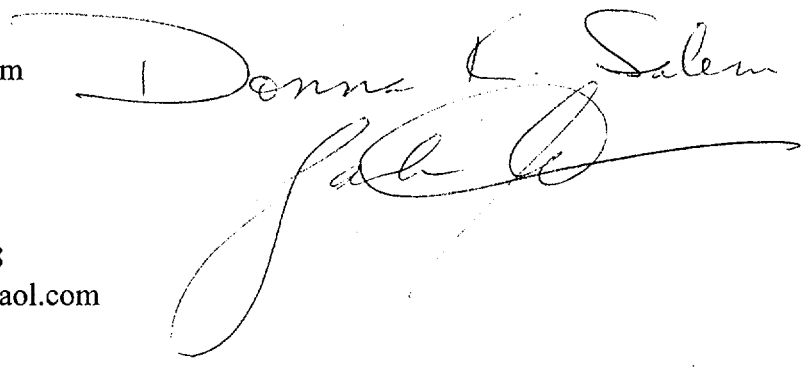 m Donna K. Salem
8
aol.com